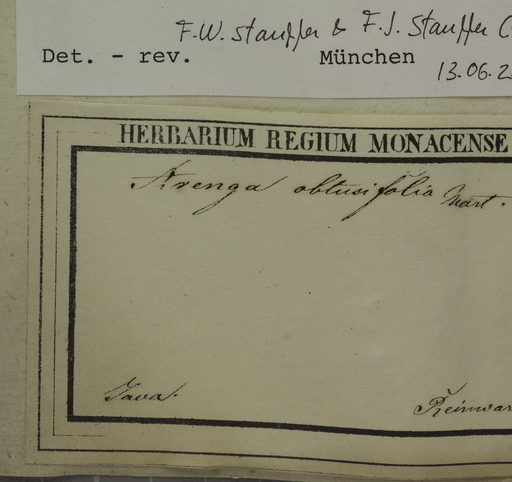 F.W. Stauffer & F.J. Stauffer (
Det. - rev. München
13.06.2
HERBARIUM REGIUM MONACENSE
Arenga obtusifolia Mart.
Java.
Reinwar